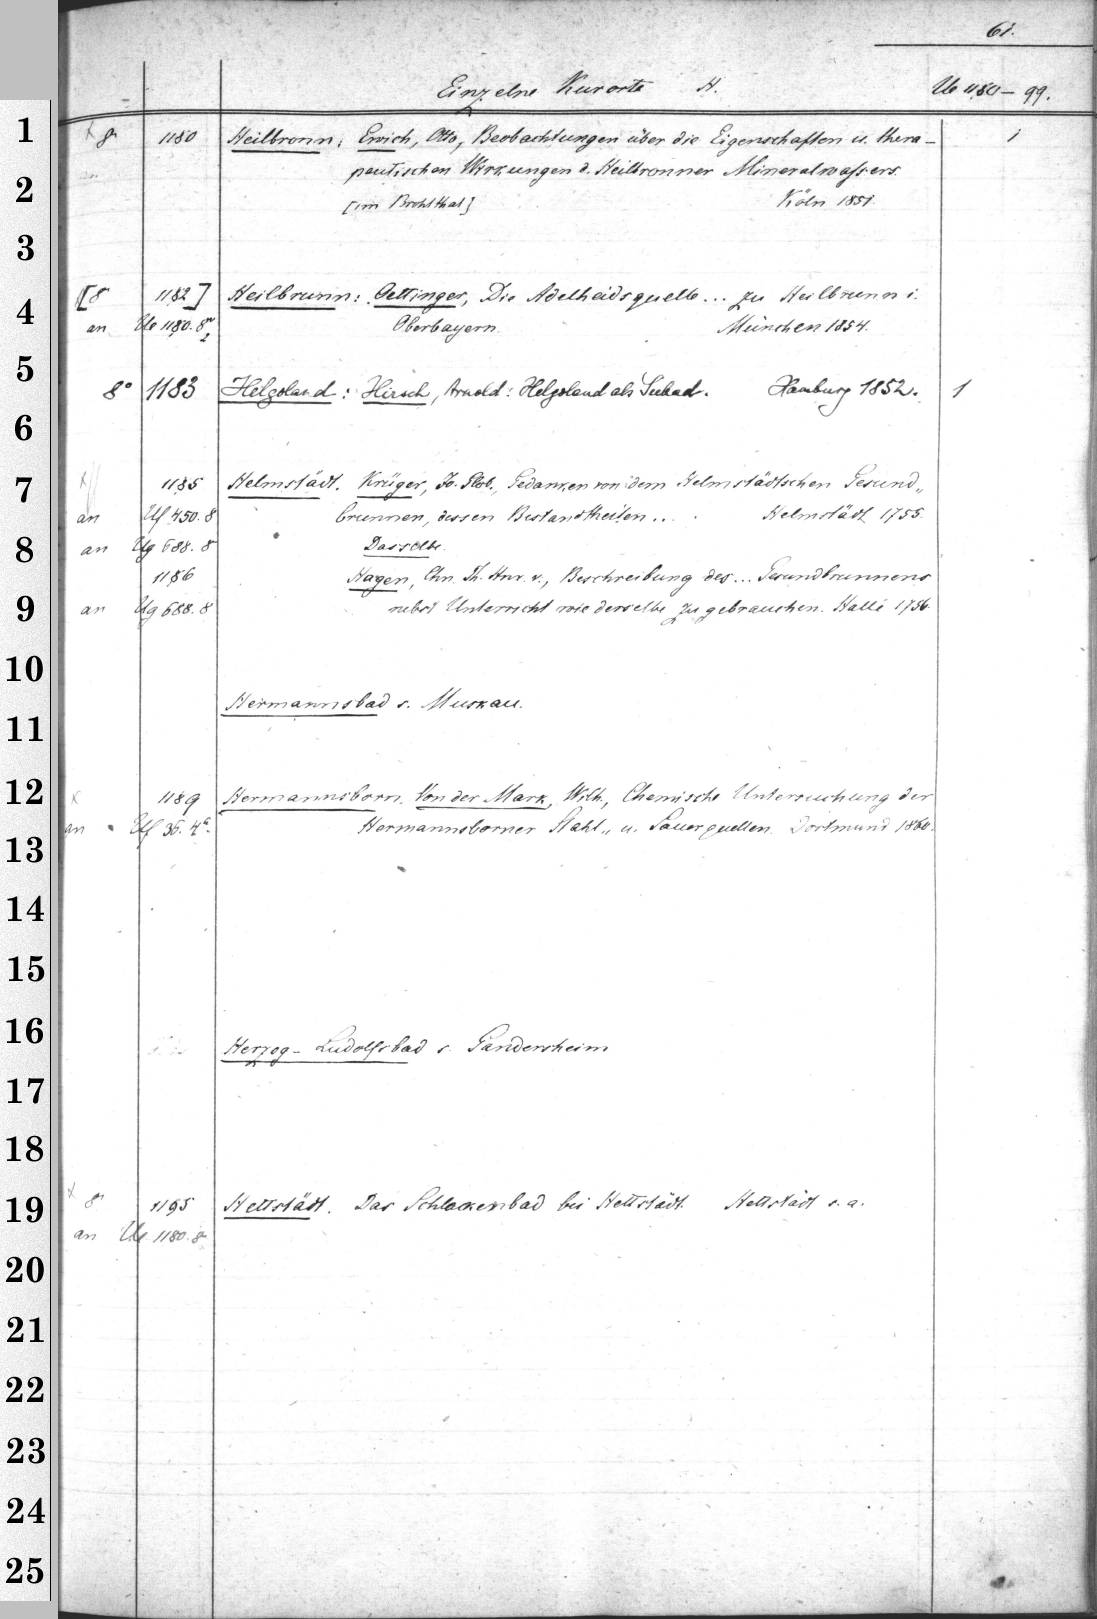 61.
Einzelne Kurorte H. Ue 1180 - 99.
1 x 8° 1180 Heilbronn: Erwich, Otto, Beobachtungen über die Eigenschaften u. thera- 1
peutischen Wirkungen d. Heilbronner Mineralwassers.
2 [im Brohlthal] Köln 1851.
3
4 [8° 1182] Heilbrunn: Oettinger, Die Adelheidsquelle... zu Heilbrunn i.
an Ue 1180. 8° Oberbayern. München 1854.
5 8° 1183 Helgoland: Hirsch, Arnold: Helgoland als Seebad. Hamburg 1852. 1
6
7 x 1185 Helmstädt. Krüger, Jo. Glob., Gedanken von dem Helmstädtschen Gesund„
an Uf 450. 8 brunnen, dessen Bestandtheilen... Helmstädt 1755.
8 an Ug 688. 8 Dasselbe.
1186 Hagen, Chn. Th. Hnr. v., Beschreibung des... Gesundbrunnens
9 an Ug 688. 8 nebst Unterricht wie derselbe zu gebrauchen. Halle 1756.
10
11 Hermannsbad s. Muskau.
12 x 1189 Hermannsborn. Von der Mark, Wilh., Chemische Untersuchung der
an Uf 35. 4°. Hermannsborner Stahl„ u. Sauerquellen. Dortmund 1860.
13
14
15
16 Herzog-Ludolfsbad s. Gandersheim
17
18
19 x 8° 1195 Hettstädt. Das Schlackenbad bei Hettstädt. Hettstädt s. a.
an Ue 1180. 8°
20
21
22
23
24
25